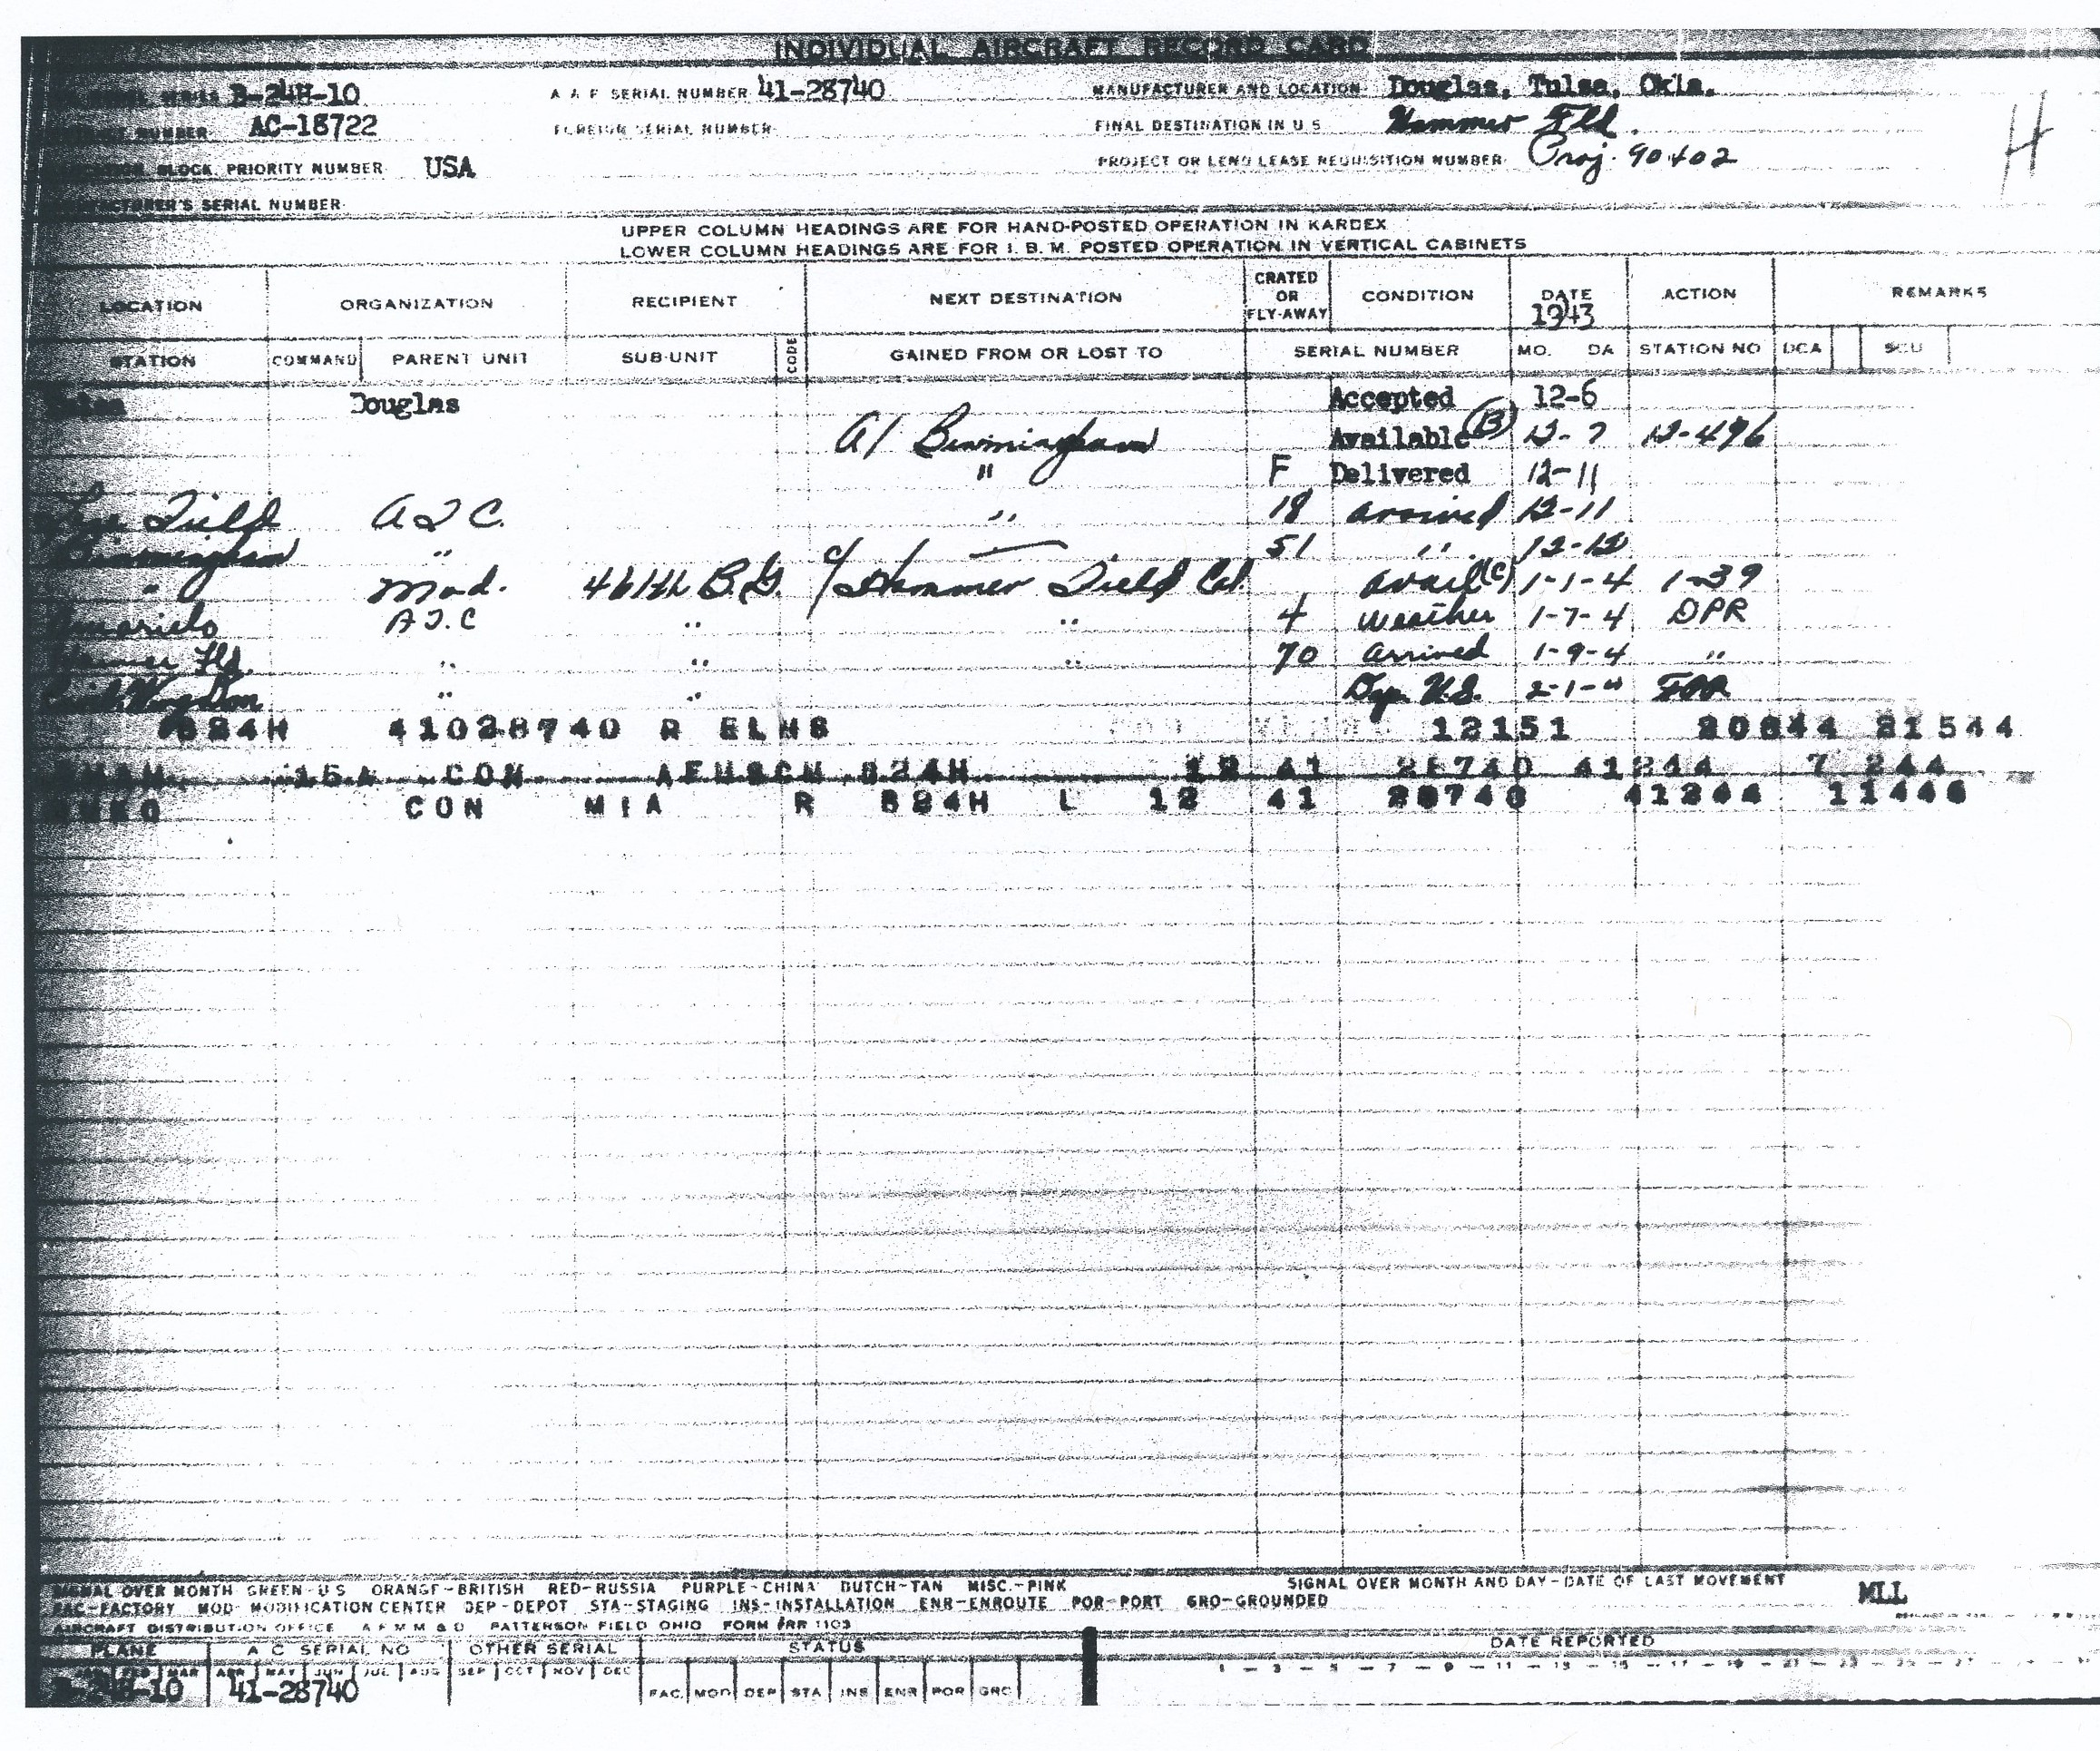 INDIVIDUAL AIRCRAFT RECORD CARD
B-24H-10 A A F SERIAL NUMBER 41-28740 MANUFACTURER AND LOCATION Douglas, Tulsa, Okla.
NUMBER AC-18722 FOREIGN SERIAL NUMBER FINAL DESTINATION IN U S Hammer Fld.
BLOCK PRIORITY NUMBER USA PROJECT OR LEND LEASE REQUISITION NUMBER Proj. 90402
H
MANUFACTURER'S SERIAL NUMBER
UPPER COLUMN HEADINGS ARE FOR HAND-POSTED OPERATION IN KARDEX
LOWER COLUMN HEADINGS ARE FOR I. B. M. POSTED OPERATION IN VERTICAL CABINETS
LOCATION ORGANIZATION RECIPIENT NEXT DESTINATION CRATED OR FLY-AWAY CONDITION DATE 1943 ACTION REMARKS
STATION COMMAND PARENT UNIT SUB-UNIT CODE GAINED FROM OR LOST TO SERIAL NUMBER MO. DA STATION NO DCA SCU
Tulsa Douglas Accepted 12-6
A/ Birmingham Available (B) 12-7 12-496
" F Delivered 12-11
Field A T C. " 18 arrived 12-11
Birmingham " 51 " 12-12
" Mod. 461th B.G. c/ Hammer Field Cal. avail (C) 1-1-4 1-39
Amarillo A T C " " 4 weather 1-7-4 DPR
Hammer Fld. " " " 70 arrived 1-9-4 "
" " Dep. U.S. 2-1-4
B24H 41028740 R ELMS 12151 20844 21544
15A CON B24H 12 41 28740 41244 7 244
CON MIA R B24H L 12 41 28740 41244 11446
SIGNAL OVER MONTH GREEN-U S ORANGE-BRITISH RED-RUSSIA PURPLE-CHINA DUTCH-TAN MISC.-PINK SIGNAL OVER MONTH AND DAY-DATE OF LAST MOVEMENT
MLL
FAC-FACTORY MOD-MODIFICATION CENTER DEP-DEPOT STA-STAGING INS-INSTALLATION ENR-ENROUTE POR-PORT GRO-GROUNDED
AIRCRAFT DISTRIBUTION OFFICE A F M M & D PATTERSON FIELD OHIO FORM PRR 1103
PLANE A C SERIAL NO OTHER SERIAL STATUS DATE REPORTED
JAN FEB MAR APR MAY JUN JUL AUG SEP OCT NOV DEC 1 - 3 - 5 - 7 - 9 - 11 - 13 - 15 - 17 - 19 - 21 - 23 - 25 - 27
B-24H-10 41-28740 FAC MOD DEP STA INS ENR POR GRO